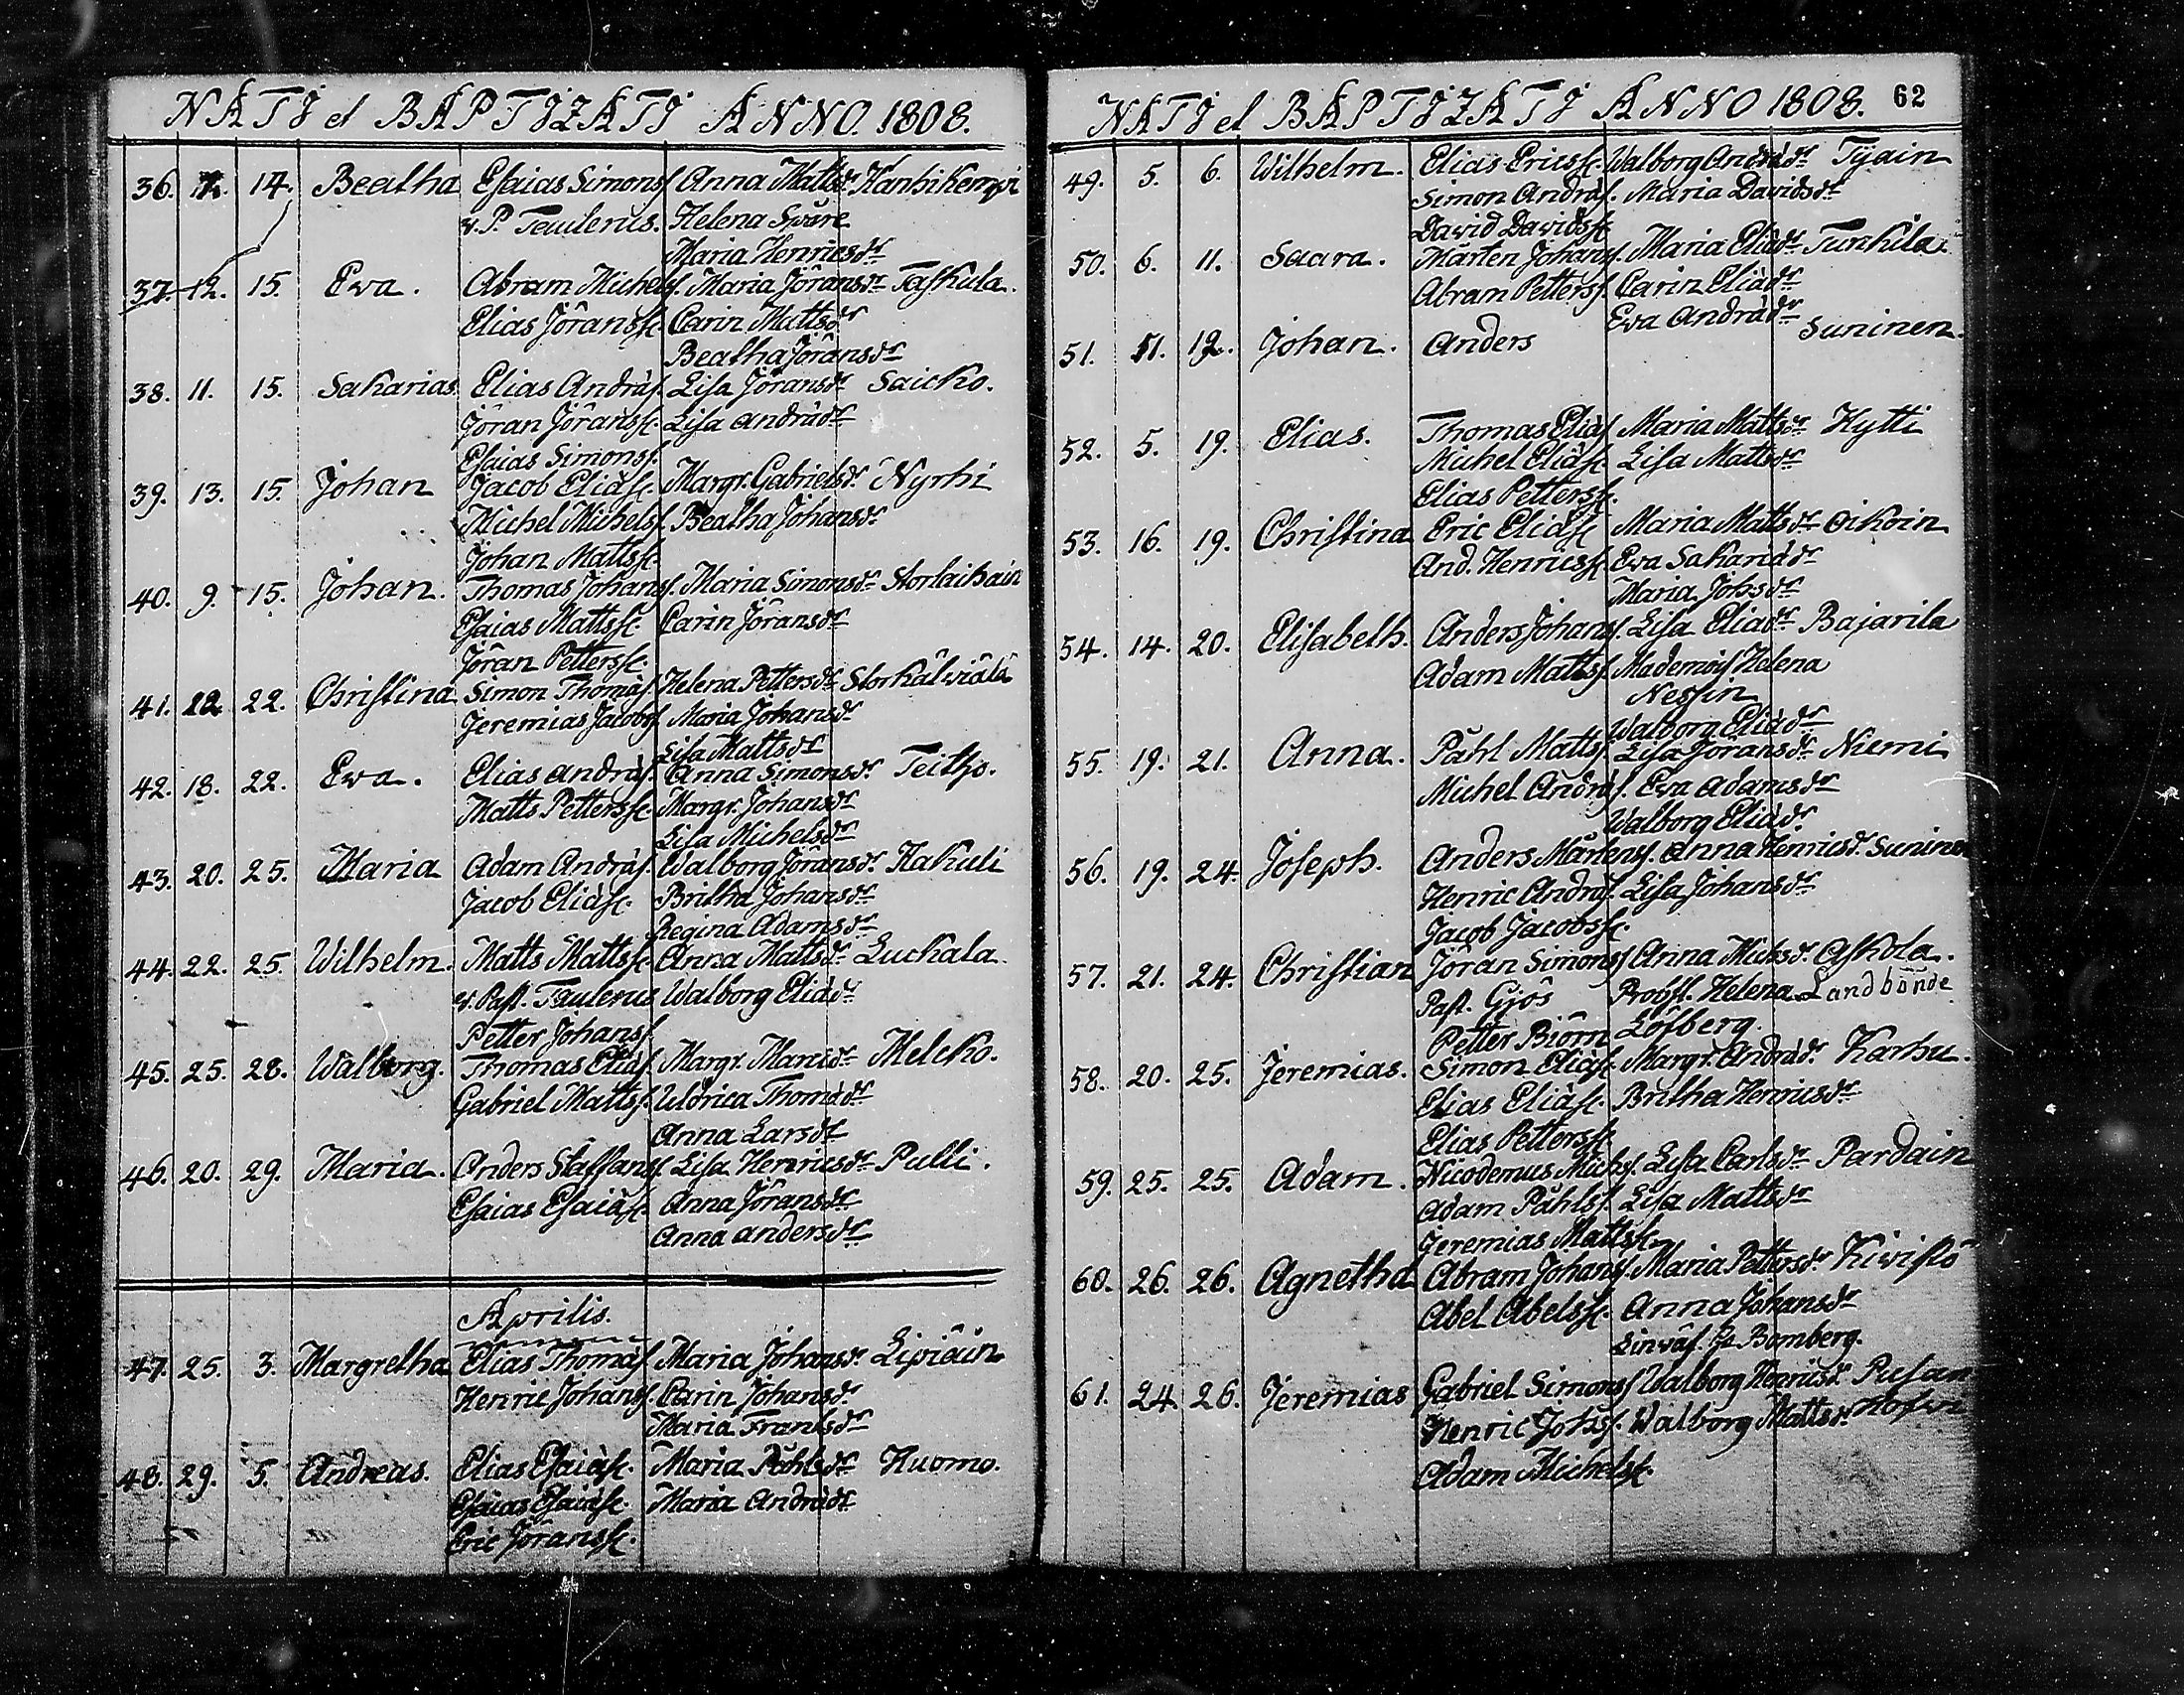 NATI et BAPTIZATI ANNO. 1808.
36. 14. Beatha Esaias Simonss. Anna Mattsdr Kanhikempi
v. P. Taulerus. Helena Sware
Maria Henricsdr
37. 12. 15. Eva. Abram Michelss. Maria Jöransdr Taskula.
Elias Jöransse. Carin Mattsdr
Beatha Jöransdr
38. 11. 15. Sakarias. Elias Andräs. Lisa Jöransdr Saicko.
Jöran Jöransse. Lisa Andrädr
Esaias Simonss.
39. 13. 15. Johan Jacob Eliäse. Margr. Gabrielsdr. Nyrhi
Michel Michelss. Beatha Johansdr
Johan Mattsse.
40. 9. 15. Johan. Thomas Johanss. Maria Simonsdr Storlaihain
Esaias Mattsse. Carin Jöransdr
Jöran Pettersse.
41. 22. 22. Christina Simon Thomäs. Helena Pettersdr Storkälwiälä
Jeremias Jacobss Maria Johansdr
Lisa Mattsdr
42. 18. 22. Eva. Elias Andräs. Anna Simonsdr Teitto.
Matts Pettersse. Margr. Johansdr
Lisa Michelsdr
43. 20. 25. Maria Adam Andräs. Walborg Jöransdr. Kakuli
Jacob Eliäse. Britha Johansdr
Regina Adamsdr
44. 22. 25. Wilhelm. Matts Mattsse. Anna Mattsdr Luckala.
v. Past. Taulerus Walborg Eliädr
Petter Johanss.
45. 25. 28. Walborg. Thomas Eliäs. Margr. Mariädr Melcko.
Gabriel Mattss. Uldrica Thomädr
Anna Larsdr
46. 20. 29. Maria. Anders Staffanss Lisa Henricsdr Pulli.
Esaias Esaiäse. Anna Jöransdr
Anna Andersdr
Aprilis.
47. 25. 3. Margretha Elias Thomäs Maria Johansdr. Lipiäin
Henric Johanss. Carin Johansdr
Maria Fransdr
48. 29. 5. Andreas. Elias Esaiäse. Maria Påhlsdr Huomo.
Esaias Esaiäse. Maria Andrädr
Eric Jöransse.
NATI et BAPTIZATI ANNO 1808. 62
49. 5. 6. Wilhelm. Elias Ericsse. Walborg Andrädr Tyäin
Simon Andräs. Maria Davidsdr
David Davidsse
50. 6. 11. Saara. Mårten Johanss. Maria Eliädr Tunkila.
Abram Petterss. Carin Eliädr
Eva Andrädr
51. 11. 12. Johan. Anders Suninen.
52. 5. 19. Elias. Thomas Eliäs Maria Mattsdr Hytti
Michel Eliäse. Lisa Mattsdr
Elias Pettersse.
53. 16. 19. Christina Eric Eliäse Maria Mattsdr Oikoin
And. Henricsse Eva Sakariädr
Maria Johsdr
54. 14. 20. Elisabeth. Anders Johanss. Lisa Eliädr Bajarila
Adam Mattss. Mademois Helena
Nessin
Walborg Eliädr
55. 19. 21. Anna. Påhl Mattss. Lisa Jöransdr Niemi
Michel Andräs. Eva Adamsdr
Walborg Eliädr
56. 19. 24. Joseph. Anders Mårtenss. Anna Henricsdr. Suninen
Henric Andräs. Lisa Johansdr
Jacob Jacobsse.
57. 21. 24. Christian Jöran Simonss Anna Michsdr. Askola.
Past. Gjös Probst. Helena Landbönde
Petter Biörn Löfberg.
58. 20. 25. Jeremias. Simon Eliäse. Margr. Andrädr. Karhu.
Elias Eliäse. Britha Henricsdr
Elias Pettersse
59. 25. 25. Adam. Nicodemus Michs. Lisa Carlsdr Pardain
Adam Påhlss. Lisa Mattsdr
Jeremias Mattsse.
60. 26. 26. Agnetha Abram Johanss. Maria Pettersdr Kivistö
Abel Abelsse. Anna Johansdr
Bomberg.
61. 24. 26. Jeremias Gabriel Simonss Walborg Henricsdr Pusan
Henric Johss. Walborg Mattsdr.
Adam Michelsse.